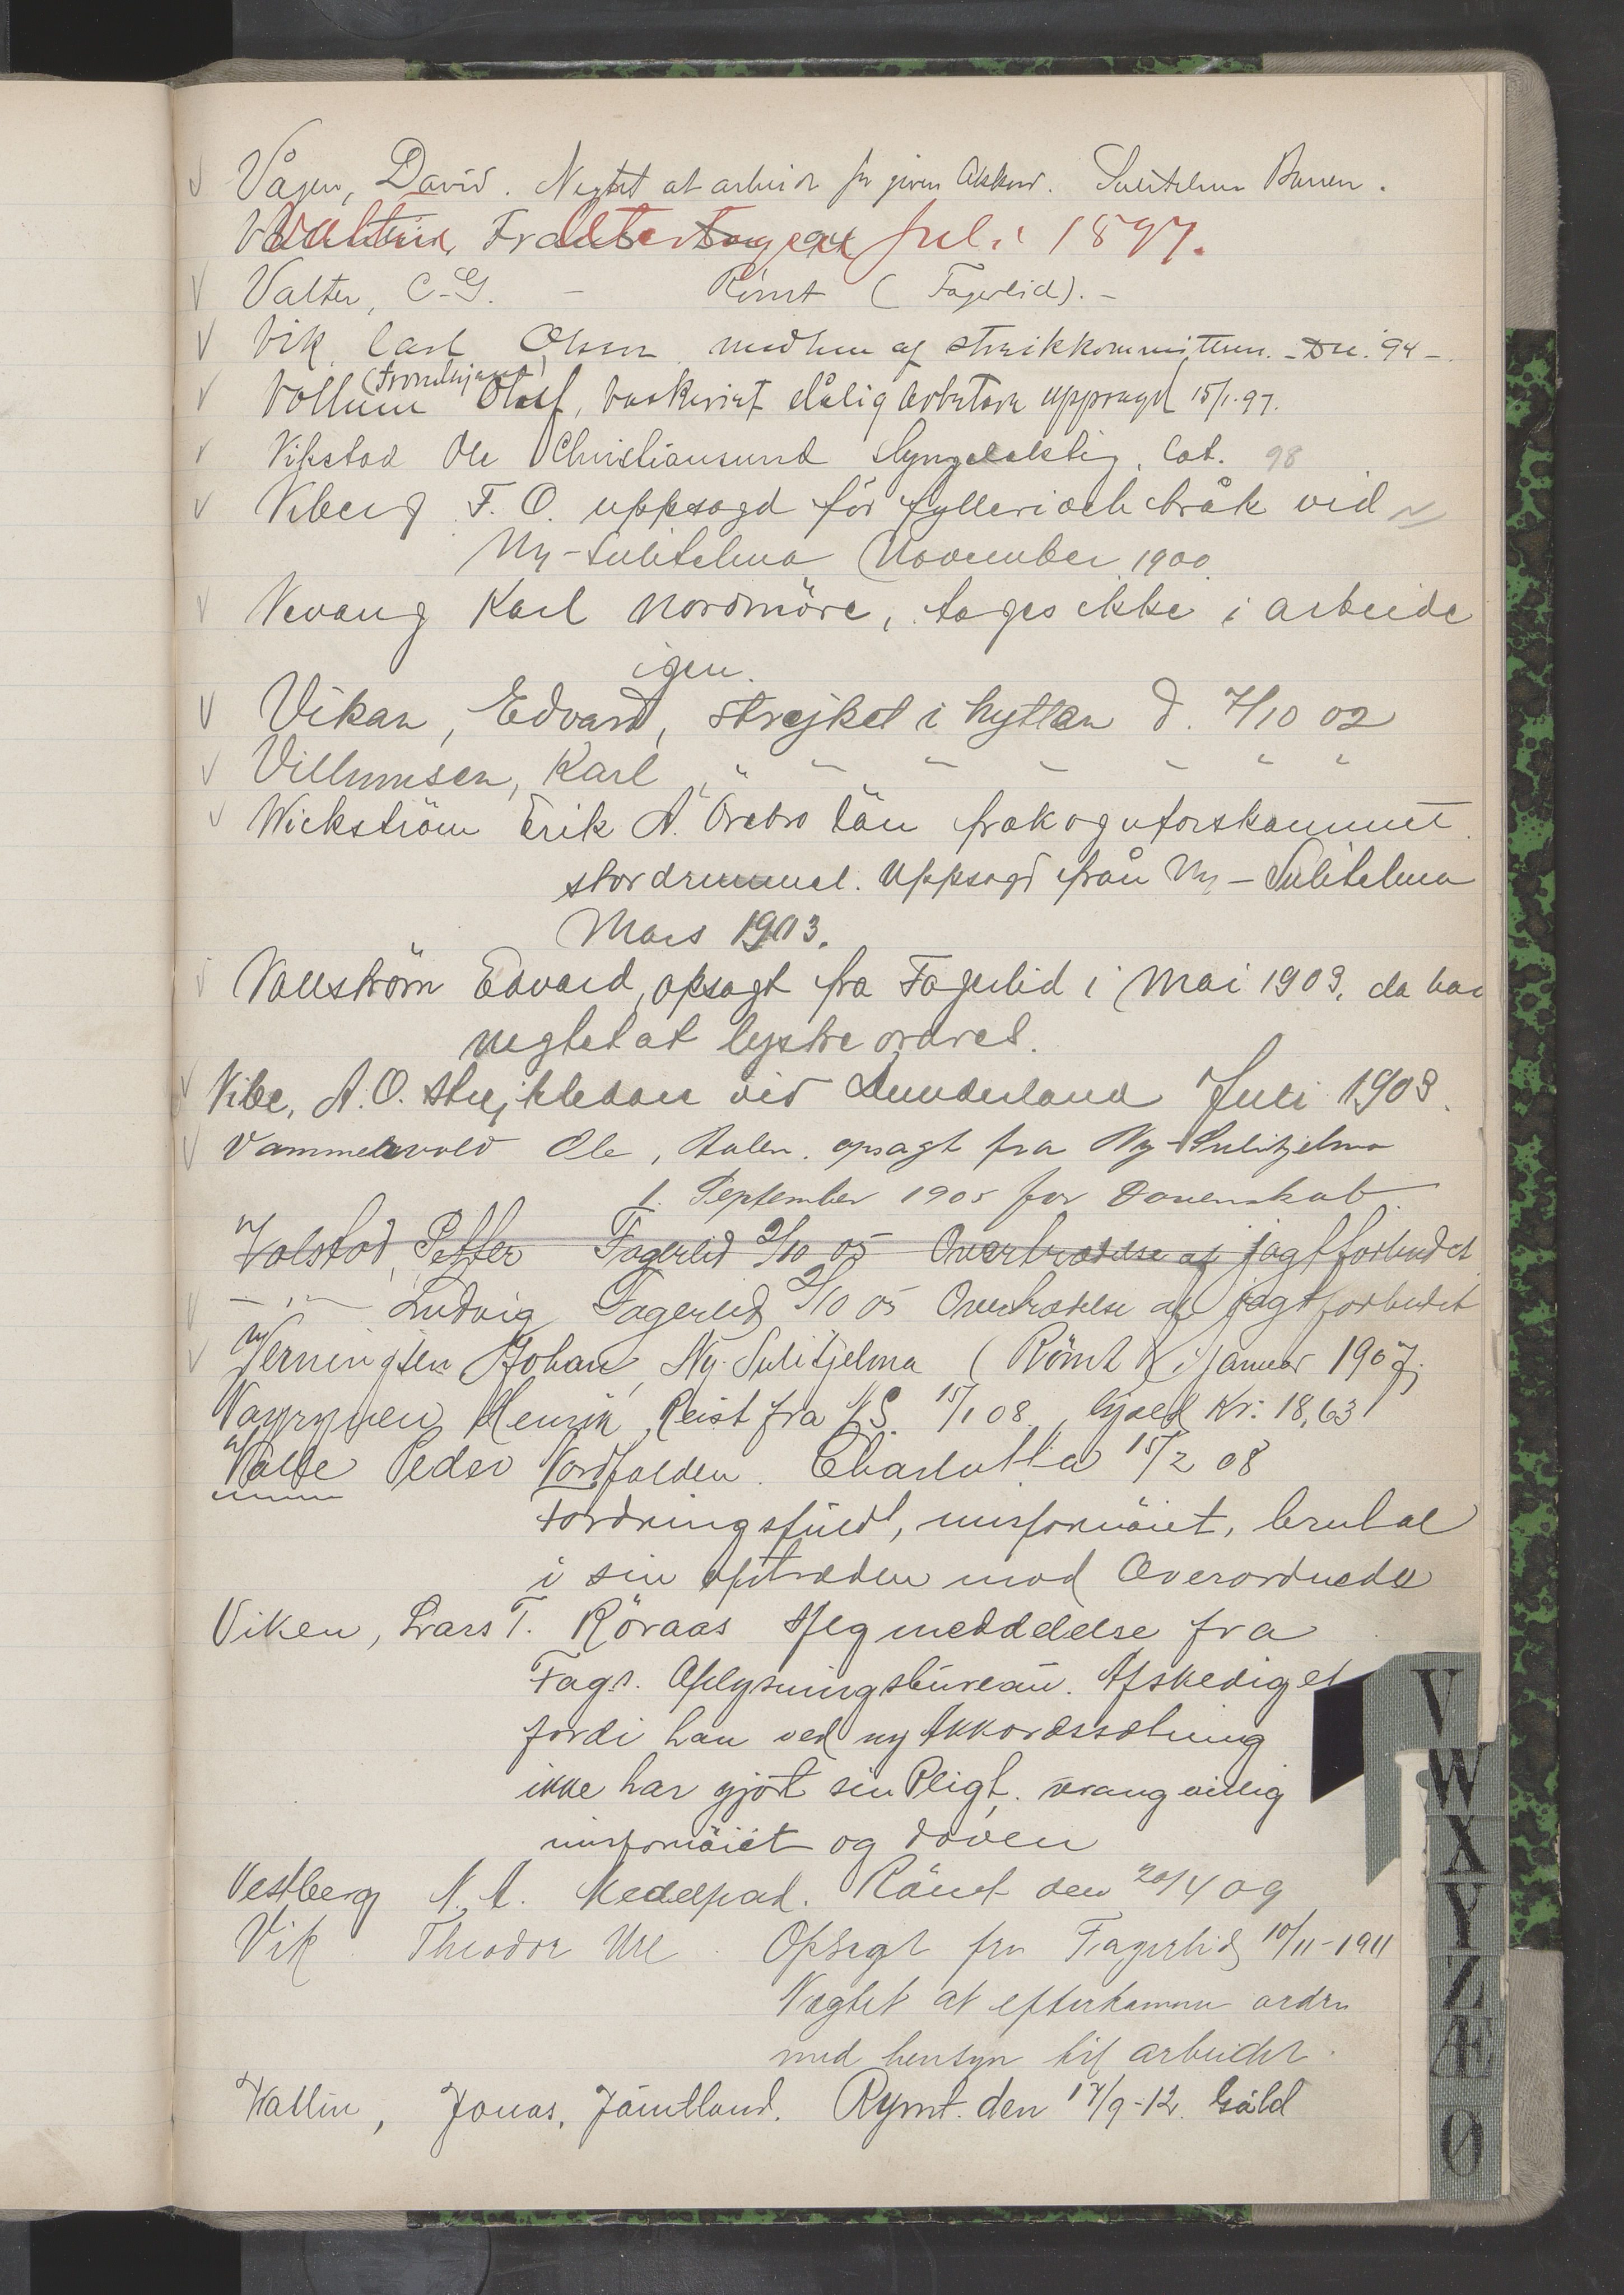 Vågen, David. Negtet at arbeide for given Akkord. Sulitelma Banen.
Valtin, Frans
Atertagen Juli 1897.
Valter, C-G. - Rimt (Fagerlid). -
Vik, Carl Olsson medlem af streikkommitteen. - Dec. 94 -
(Trondhjem)
Vollum Olaf, dålig Arbetare uppsagd 15/1.97.
Vikstad Ole Christiansund slyngelaktig. Cat. 98
Viberg F. O. uppsagd för fylleri och bråk vid
Ny-Sulitelma November 1900
Vevang Karl Nordmöre, tages ikke i arbeide
igen.
Vikan, Edvard, strejket i hyttan d. 7/10 02
Villumsen, Karl " - - - - " "
Wickström Erik A. Örebro län fræk og uforskammet
stordrummel. Uppsagd från Ny-Sulitelma
Mars 1903.
Vallström Edvard, opsagt fra Fagerlid i Mai 1903, da han
negtet at lystre ordres.
Vibe, A. O. strejkledare vid Dunderland Juli 1903.
Vammelvold Ole, Aalen. opsagt fra Ny-Sulitjelma
1. September 1905 for Dovenskab
Valstad, Petter Fagerlid 2/10 05 Overtrædelse af jagtforbudet
- " - Ludvig Fagerlid 2/10 05 Overtrædelse af jagtforbudet
Verningsen Johan, Ny-Sulitjelma (Römt i Januar 1907)
Väyrynen Henrik Reist fra N.S. 15/1 08. Gjæld Kr: 18,63
Valle Peder Nordfolden. Charlotta 15/2 08
Fordringsfuld, misfornöiet, brutal
i sin optræden mod Overordnede
Viken, Lars T. Röraas Ifølg meddelelse fra
Fagr. Oplysningsbureau. Afskediget
fordi han ved ny Akkordssætning
ikke har gjört sin Pligt. vrangvillig
misfornöiet og doven
Vestberg N. A. Medelpad. Römt den 20/4 09
Vik Theodor Ure. Opsagt fra Fagerlid 10/11-1911
Nægtet at efterkomme ordre
med hensyn til arbeidet.
Wallin, Jonas, Jämtland. Rymt. den 17/9-12. Gäld
V
W
X
Y
Z
Æ
Ø